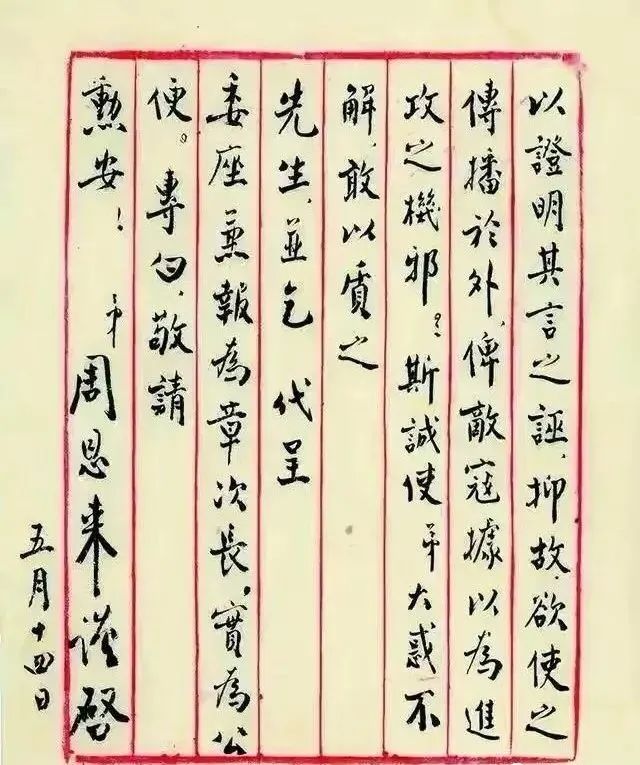 以證明其言之誣，抑故欲使之
傳播於外，俾敵寇據以為進
攻之機邪？斯誠使弟大惑不
解，敢以質之
先生，並乞代呈
委座兼報為章次長，實為公
便。專白，敬請
勳安！
弟周恩来謹啓
五月十四日